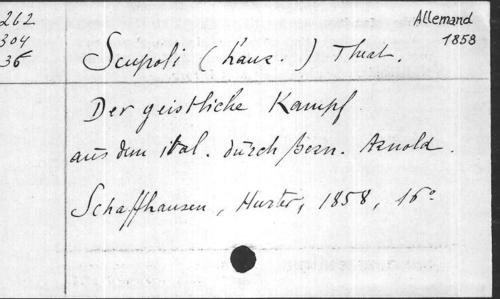 262
304
36
Allemand
1858
Scupoli (Laur.) Theat.
Der geistliche Kampf
aus dem ital. durch Bern. Arnold.
Schaffhausen, Hurter, 1858, 16°